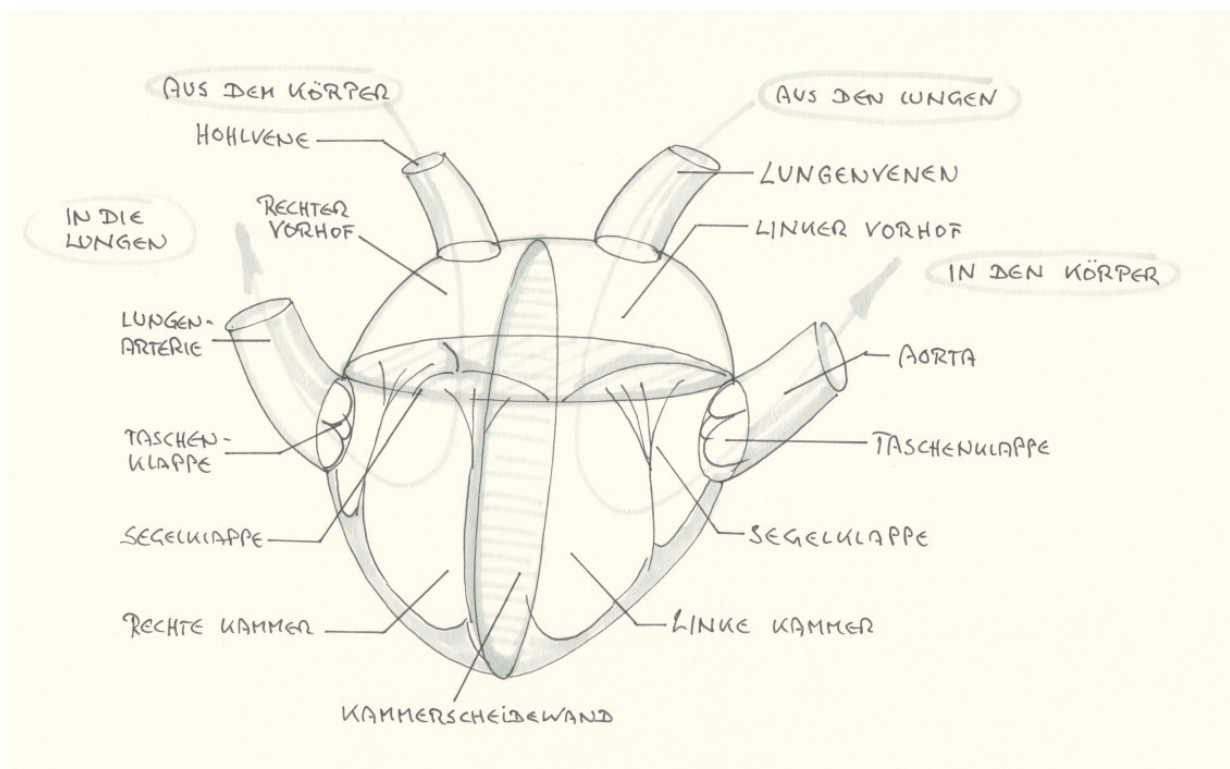 AUS DEM KÖRPER
AUS DEN LUNGEN
HOHLVENE
LUNGENVENEN
IN DIE
LUNGEN
RECHTER
VORHOF
LINKER VORHOF
IN DEN KÖRPER
LUNGEN-
ARTERIE
AORTA
TASCHEN-
KLAPPE
TASCHENKLAPPE
SEGELKLAPPE
SEGELKLAPPE
RECHTE KAMMER
LINKE KAMMER
KAMMERSCHEIDEWAND